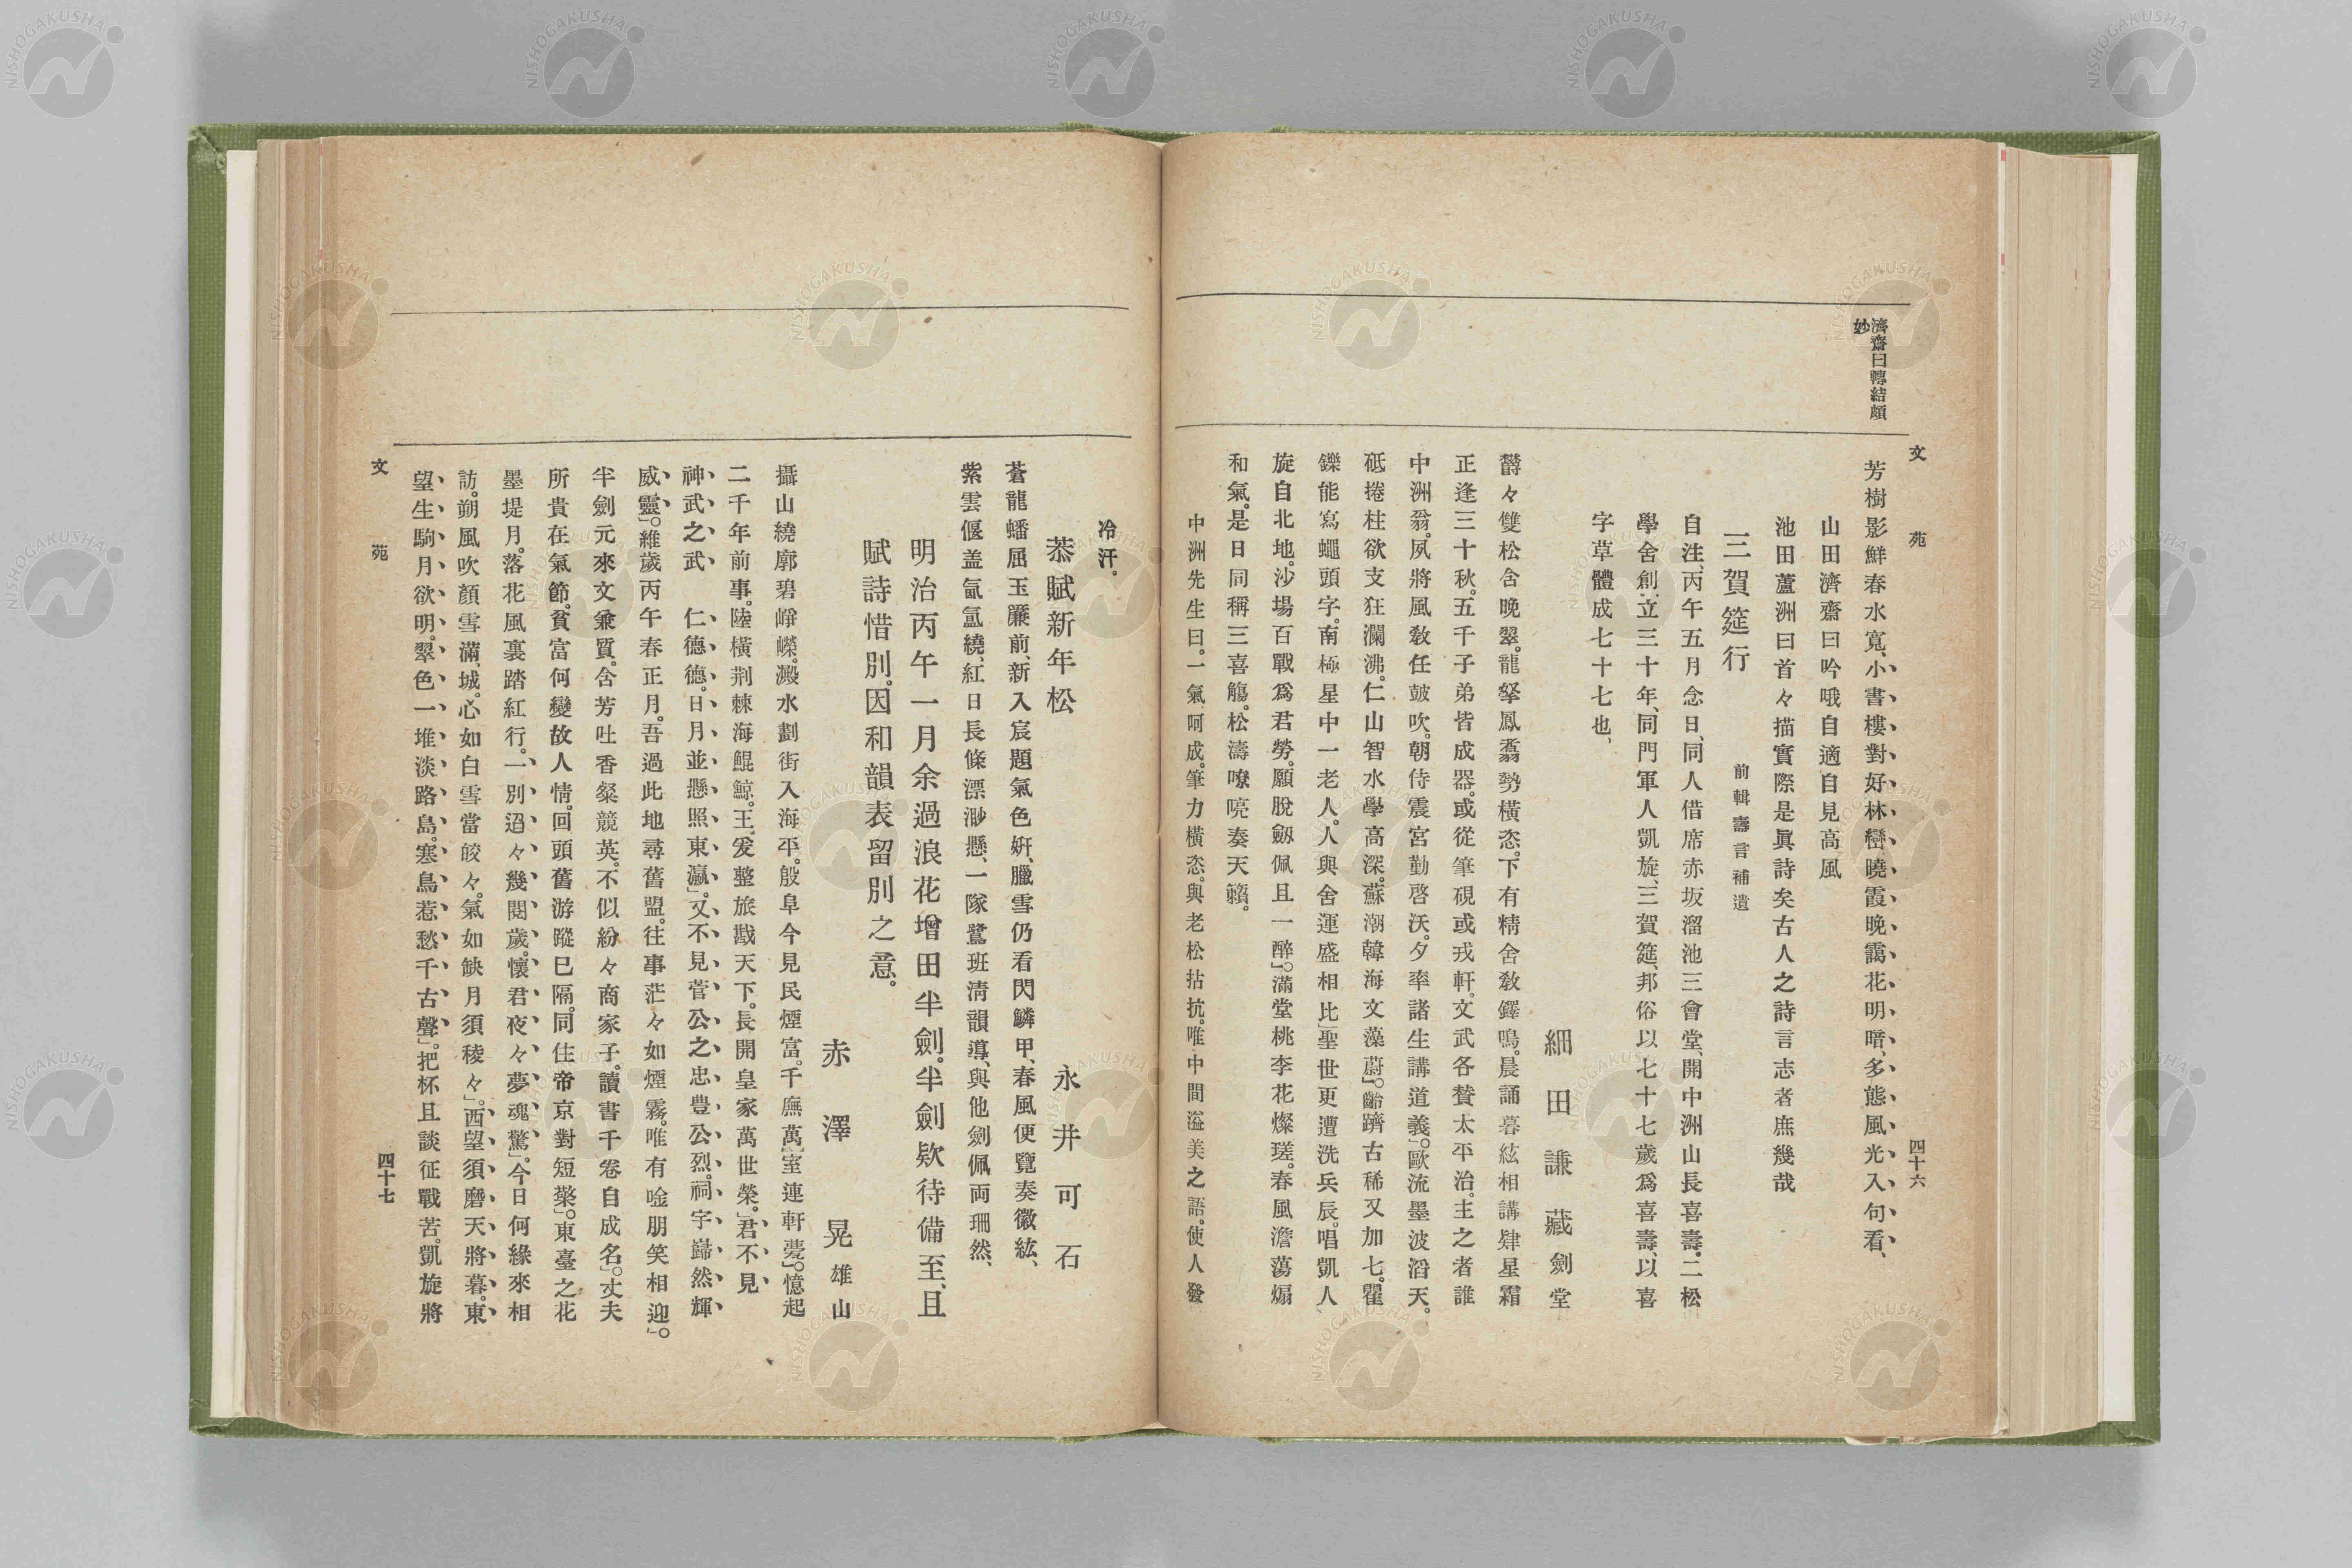 文苑
四十六
濟齋曰轉結頗
妙
芳樹影鮮春水寬、小書樓對好林巒、曉霞晚靄花明暗、多態風光入句看、
山田濟齋曰吟哦自適自見高風
池田蘆洲曰首々描實際是眞詩矣古人之詩言志者庶幾哉
三賀筵行
前輯壽言補遺
細田謙藏劍堂
自注、丙午五月念日、同人借席赤坂溜池三會堂、開中洲山長喜壽・二松
學舍創立三十年、同門軍人凱旋、三賀筵、邦俗以七十七歲爲喜壽、以喜
字草體成七十七也、
欝々雙松含晚翠。龍拏鳳翥勢橫恣。下有精舍敎鐸鳴。晨誦暮絃相講肄星霜
正逢三十秋。五千子弟皆成器。或從筆硯或戎軒。文武各贊太平治。主之者誰
中洲翁。夙將風敎任鼓吹。朝侍震宮勤啓沃。夕率諸生講道義」。歐流墨波滔天。
砥捲柱欲支狂瀾沸。仁山智水學高深。蘇潮韓海文藻蔚」。齡躋古稀又加七。矍
鑠能寫蠅頭字。南極星中一老人。人與舍運盛相比」聖世更遭洗兵辰。唱凱人
旋自北地。沙場百戰爲君勞。願脫劔佩且一醉」。滿堂桃李花燦瑳。春風澹蕩煽
和氣。是日同稱三喜觴。松濤嘹喨奏天籟。
中洲先生曰。一氣呵成。筆力橫恣。與老松拮抗。唯中間溢美之語。使人發
冷汗。
恭賦新年松
永井可石
蒼龍蟠屈玉簾前、新入宸題氣色姸、臘雪仍看閃鱗甲、春風便覽奏徽絃、
紫雲偃盖氤氳繞、紅日長條漂渺懸、一隊鷺班淸韻導、與他劍佩両珊然、
明治丙午一月余過浪花增田半劍。半劍欵待備至、且
賦詩惜別。因和韻表留別之意。
赤澤晃雄山
攝山繞廓碧崢嶸。澱水劃街入海平。殷阜今見民煙富。千廡萬室連軒甍」。憶起
二千年前事。陸橫荆棘海鯤鯨。王、爰整旅戡天下。長開皇家萬世榮。」君不見
神武之武　仁德德。日月並懸照東瀛」。又不見菅公之忠豊公烈。祠宇巋然輝
威靈」。維歲丙午春正月。吾過此地尋舊盟。往事茫々如煙霧。唯有唫朋笑相迎」。
半劍元來文兼質。含芳吐香粲競英。不似紛々商家子。讀書千卷自成名。」丈夫
所貴在氣節。貧富何變故人情。回頭舊游蹤已隔。同住帝京對短檠」。東臺之花
墨堤月。落花風裏踏紅行。一別迢々幾閱歲。懷君夜々夢魂驚」。今日何緣來相
訪。朔風吹顏雪滿城。心如白雪當皎々。氣如缺月須稜々」。西望須磨天將暮。東
望生駒月欲明。翠色一堆淡路島。塞鳥惹愁千古聲」。把杯且談征戰苦。凱旋將
文苑
四十七